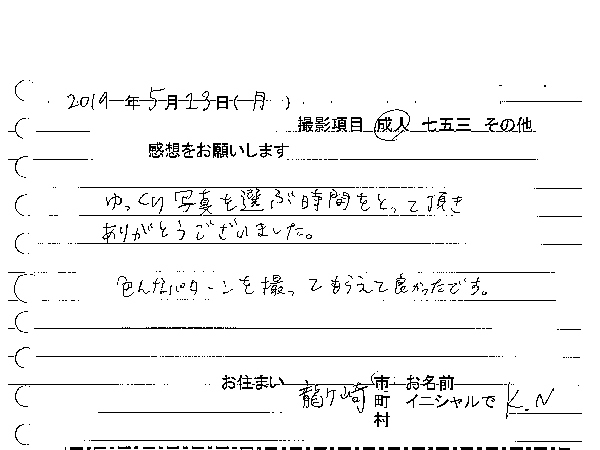 2019年5月13日(月)
撮影項目 成人 七五三 その他
感想をお願いします
ゆっくり写真を選ぶ時間をとって頂き
ありがとうございました。
色んなパターンを撮ってもらえて良かったです。
お住まい 龍ヶ崎 市 お名前
町 イニシャルで K.N
村